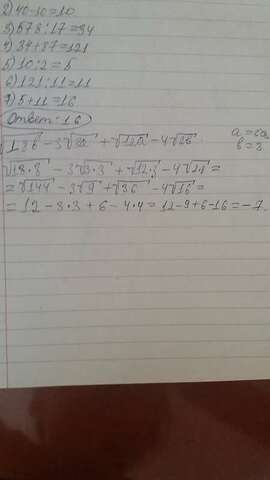 2) 40-30=10
3) 578:17=34
4) 34+87=121
5) 10:2=5
6) 121:11=11
7) 5+11=16
Ответ: 16
√18b - 3√3a + √12a - 4√2b
b=3
√18·8 - 3√3·3 + √12·3 - 4√2·8 =
= √144 - 3√9 + √36 - 4√16 =
= 12 - 3·3 + 6 - 4·4 = 12-9+6-16 = -7.